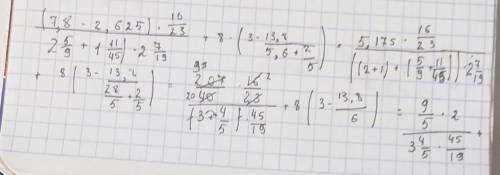 (7,8 - 2,625) · 16/23 / (2 5/9 + 1 11/45) · 2 7/19 + 8 · (3 - 13,8 / (5,6 + 2/5)) = 5,175 · 16/23 / ((2+1) + (5/9 + 11/45)) · 2 7/19
+ 8 (3 - 13,8 / (28/5 + 2/5)) = 207/40 · 16/23 / (3 + 4/5) · 45/19 + 8 (3 - 13,8 / 6) = 9/5 · 2 / 3 4/5 · 45/19 +